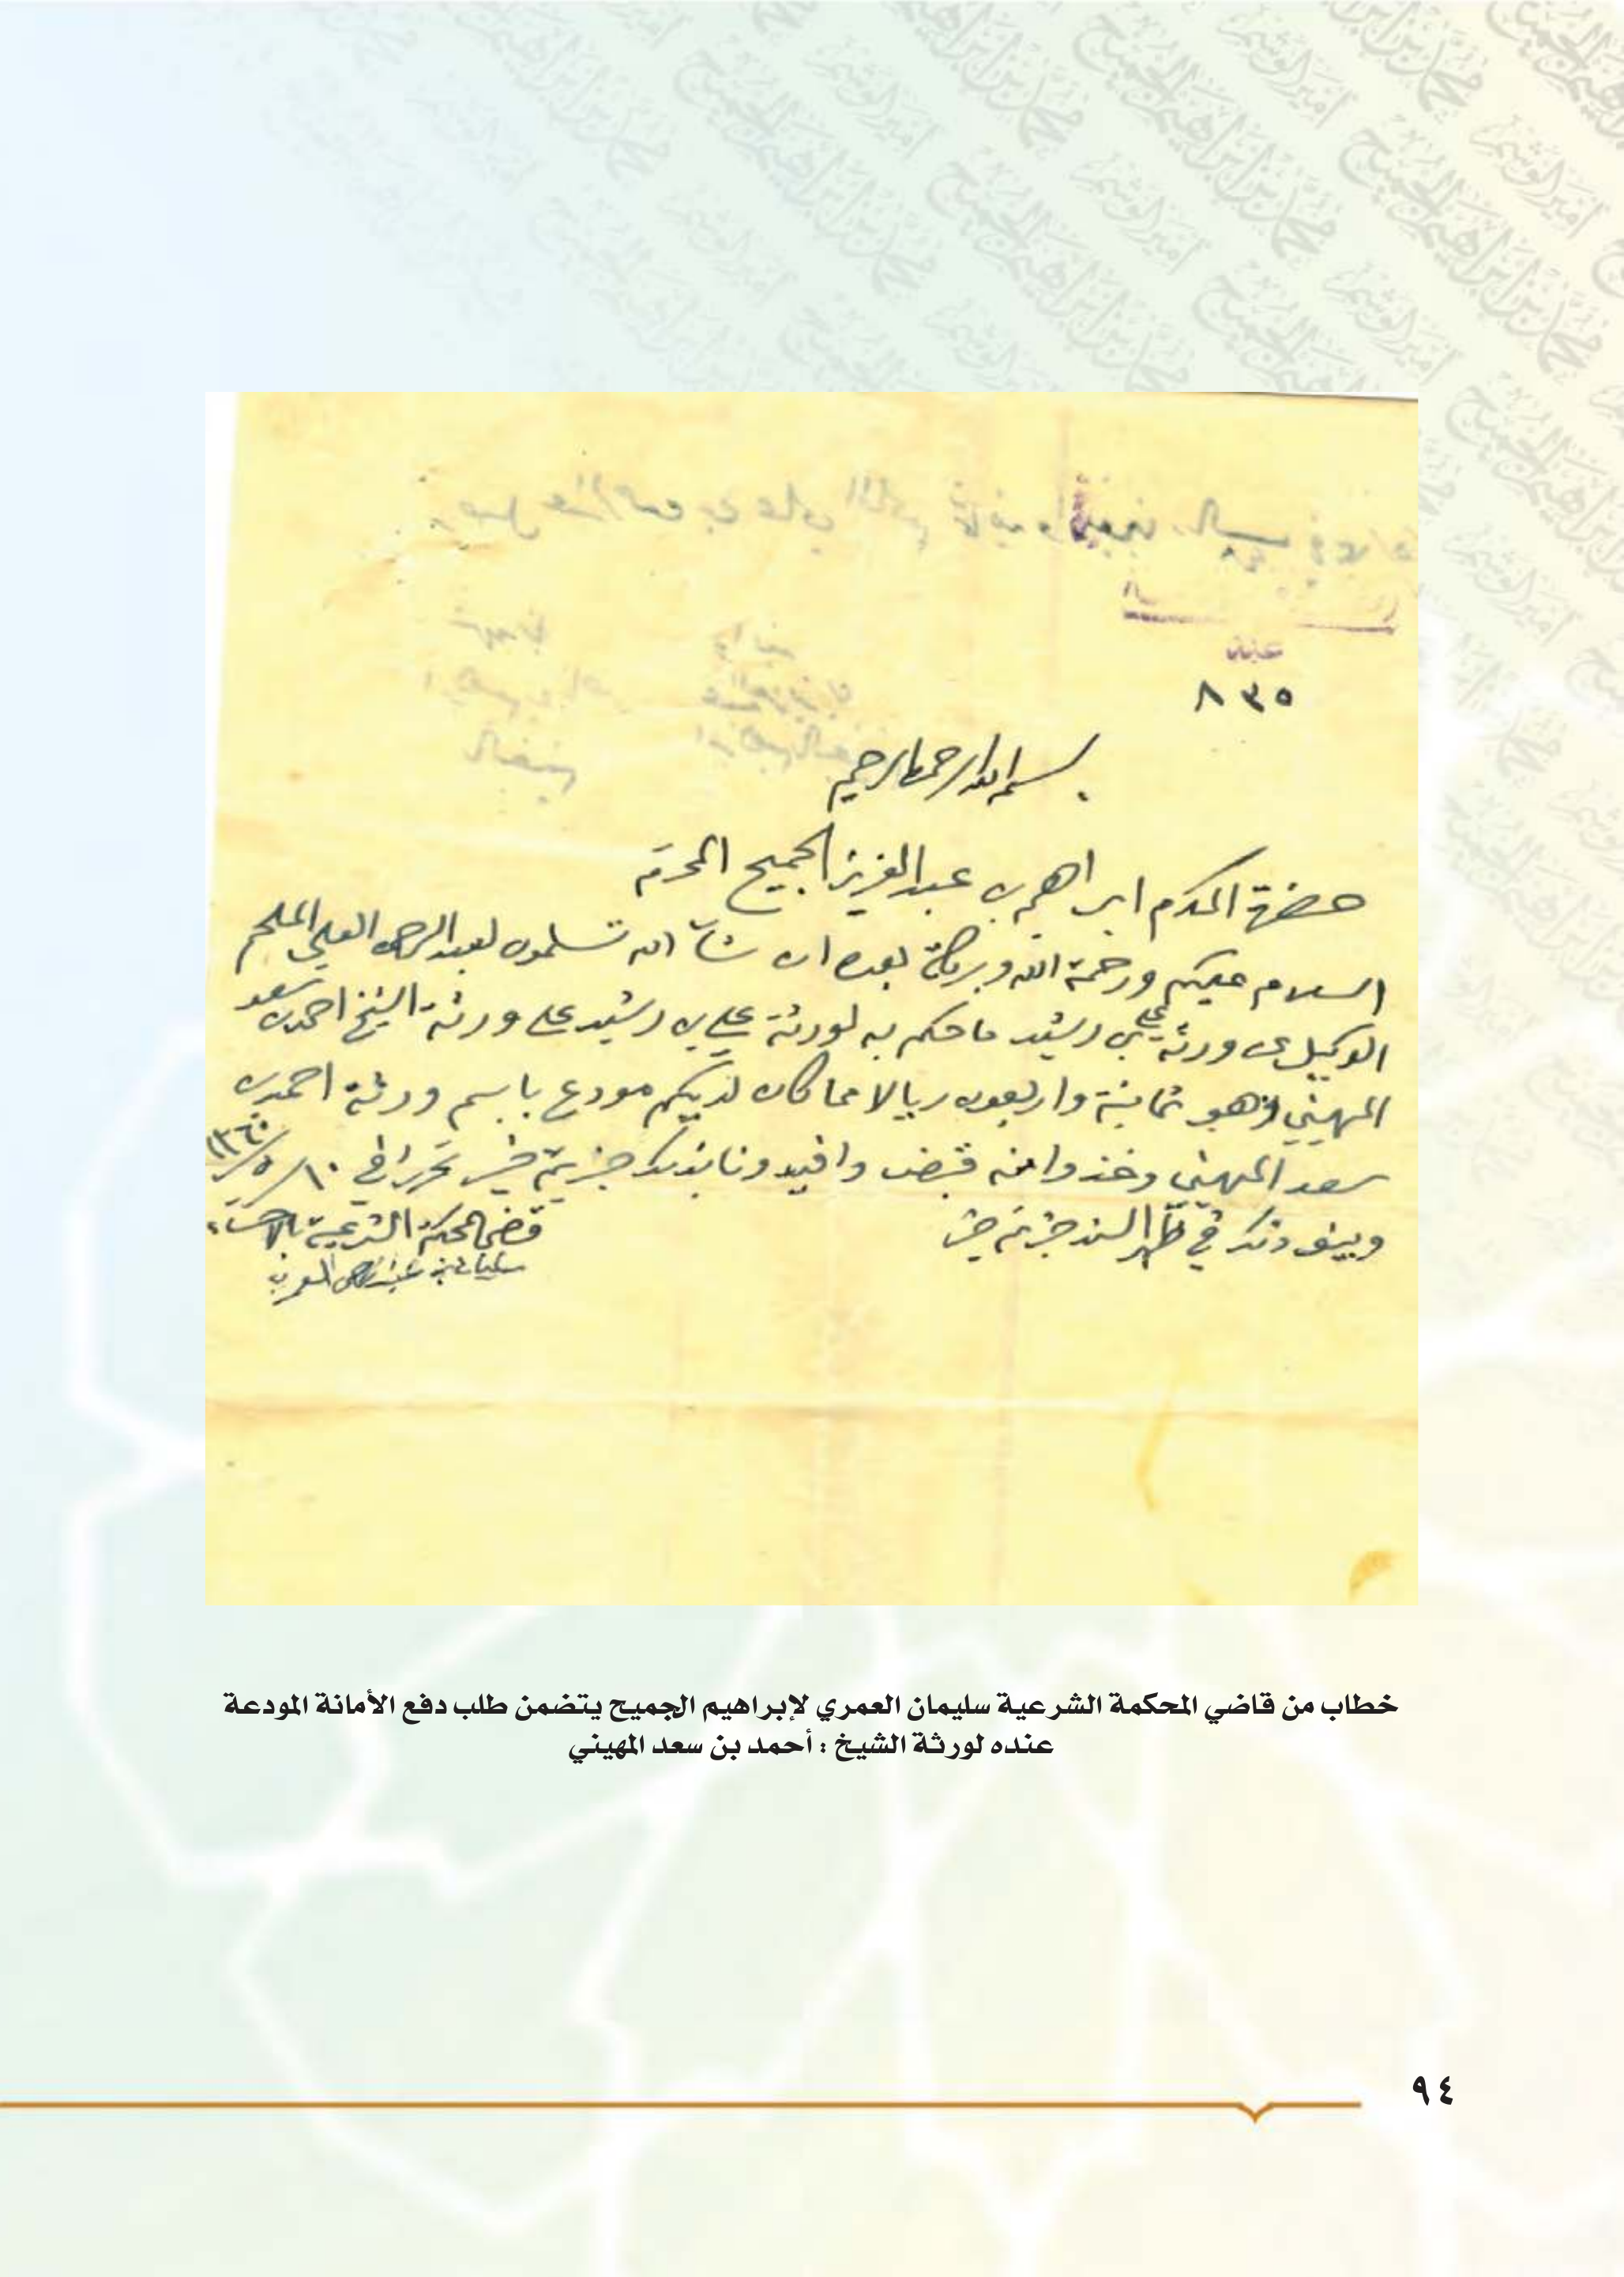 ٨٣٥
بسم الله الرحمن الرحيم
حضرة المكرم ابراهيم بن عبدالعزيز الجميح المحترم
السلام عليكم ورحمة الله وبركاته بعده ان شآء الله تسلمون لعبدالرحمن العلي الملحم
الوكيل عن ورثة علي بن رشيد ما حكم به لورثة علي بن رشيد على ورثة الشيخ احمد بن سعد
المهيني وهو ثمانية واربعون ريالا مما كان لديكم مودع باسم ورثة احمد بن
سعد المهيني وخذوا منه قبض وافيدونا بذلك جزيتم خير تحريرا في ١٠/٥/١٣٦٠
وبينو ذلك في ظهر السند جزيتم خير
قاضي المحكمة الشرعية بالاحساء
سليمان بن عبدالرحمن العمري
خطاب من قاضي المحكمة الشرعية سليمان العمري لإبراهيم الجميح يتضمن طلب دفع الأمانة المودعة
عنده لورثة الشيخ : أحمد بن سعد المهيني
٩٤